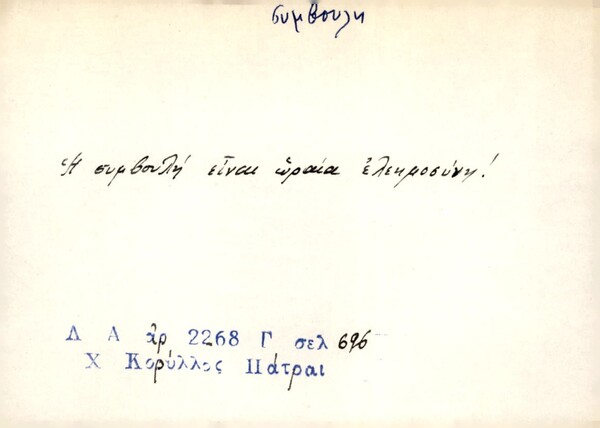 συμβουλη
Ἡ συμβουλή εἶναι ὡραία ἐλεημοσύνη!
Λ Α ἀρ 2268 Γ σελ 696
Χ Κορύλλος Πάτραι